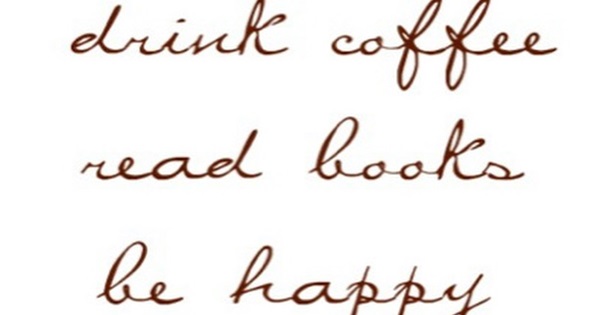 drink coffee
read books
be happy